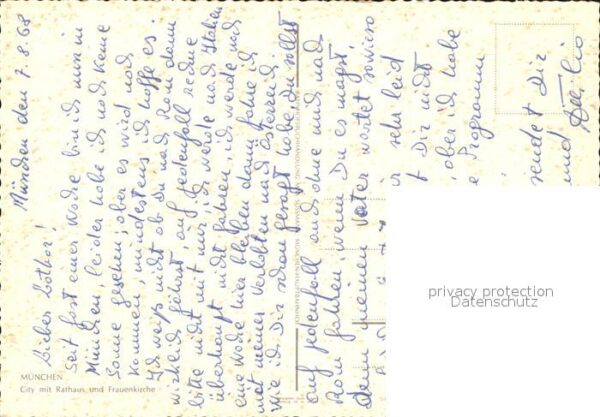 München den 7.8.68
Lieber Lothar!
Seit fast einer Woche bin ich nun in
München, leider habe ich noch keine
Sonne gesehen; aber es wird noch
kommen, mindestens ich hoffe es!
Ich weiß nicht ob Du nach Rom dann
wirklich fährst, auf jedenfall rechne
bitte nicht mit mir; ich werde nach Italien
überhaupt nicht fahren, ich werde noch
eine Woche hier bleiben dann fahre ich
mit meiner Verlobten nach Österreich.
Wie ich Dir schon gesagt habe, Du sollst
auf jedenfall auch ohne mich nach
Rom fahren, wenn Du es magst!
denn meinen Vater wartet sowieso
sehr leid
Dir nicht
aber ich habe
Programm
sendet Dir
und
MÜNCHEN
City mit Rathaus und Frauenkirche
privacy protection
Datenschutz